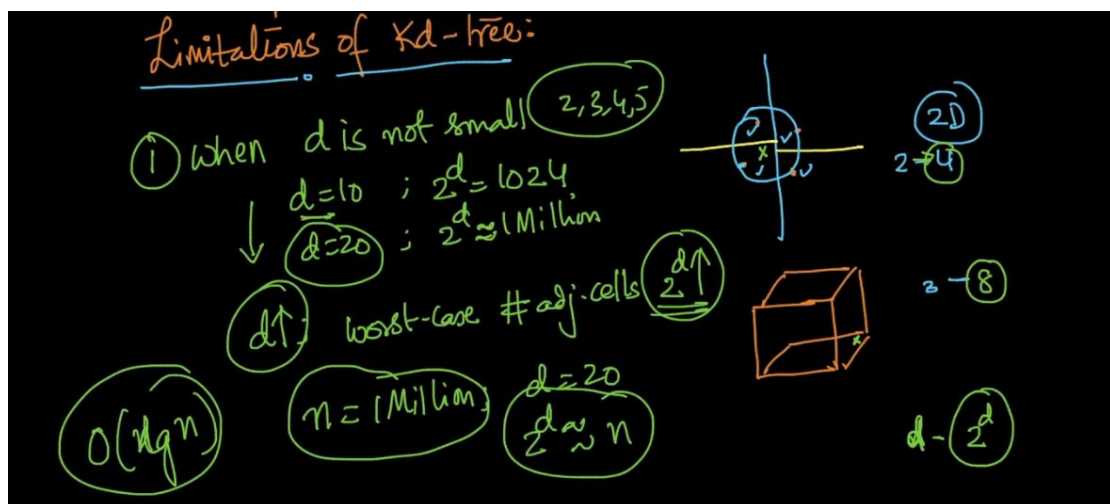 Limitations of Kd-tree:
① when d is not small 2,3,4,5
d=10 ; 2^d = 1024
d=20 ; 2^d ≈ 1 Million
d↑: worst-case # adj-cells 2^d↑
n = 1 Million; d=20
2^d ≈ n
2D
2→4
3 - 8
d - 2^d